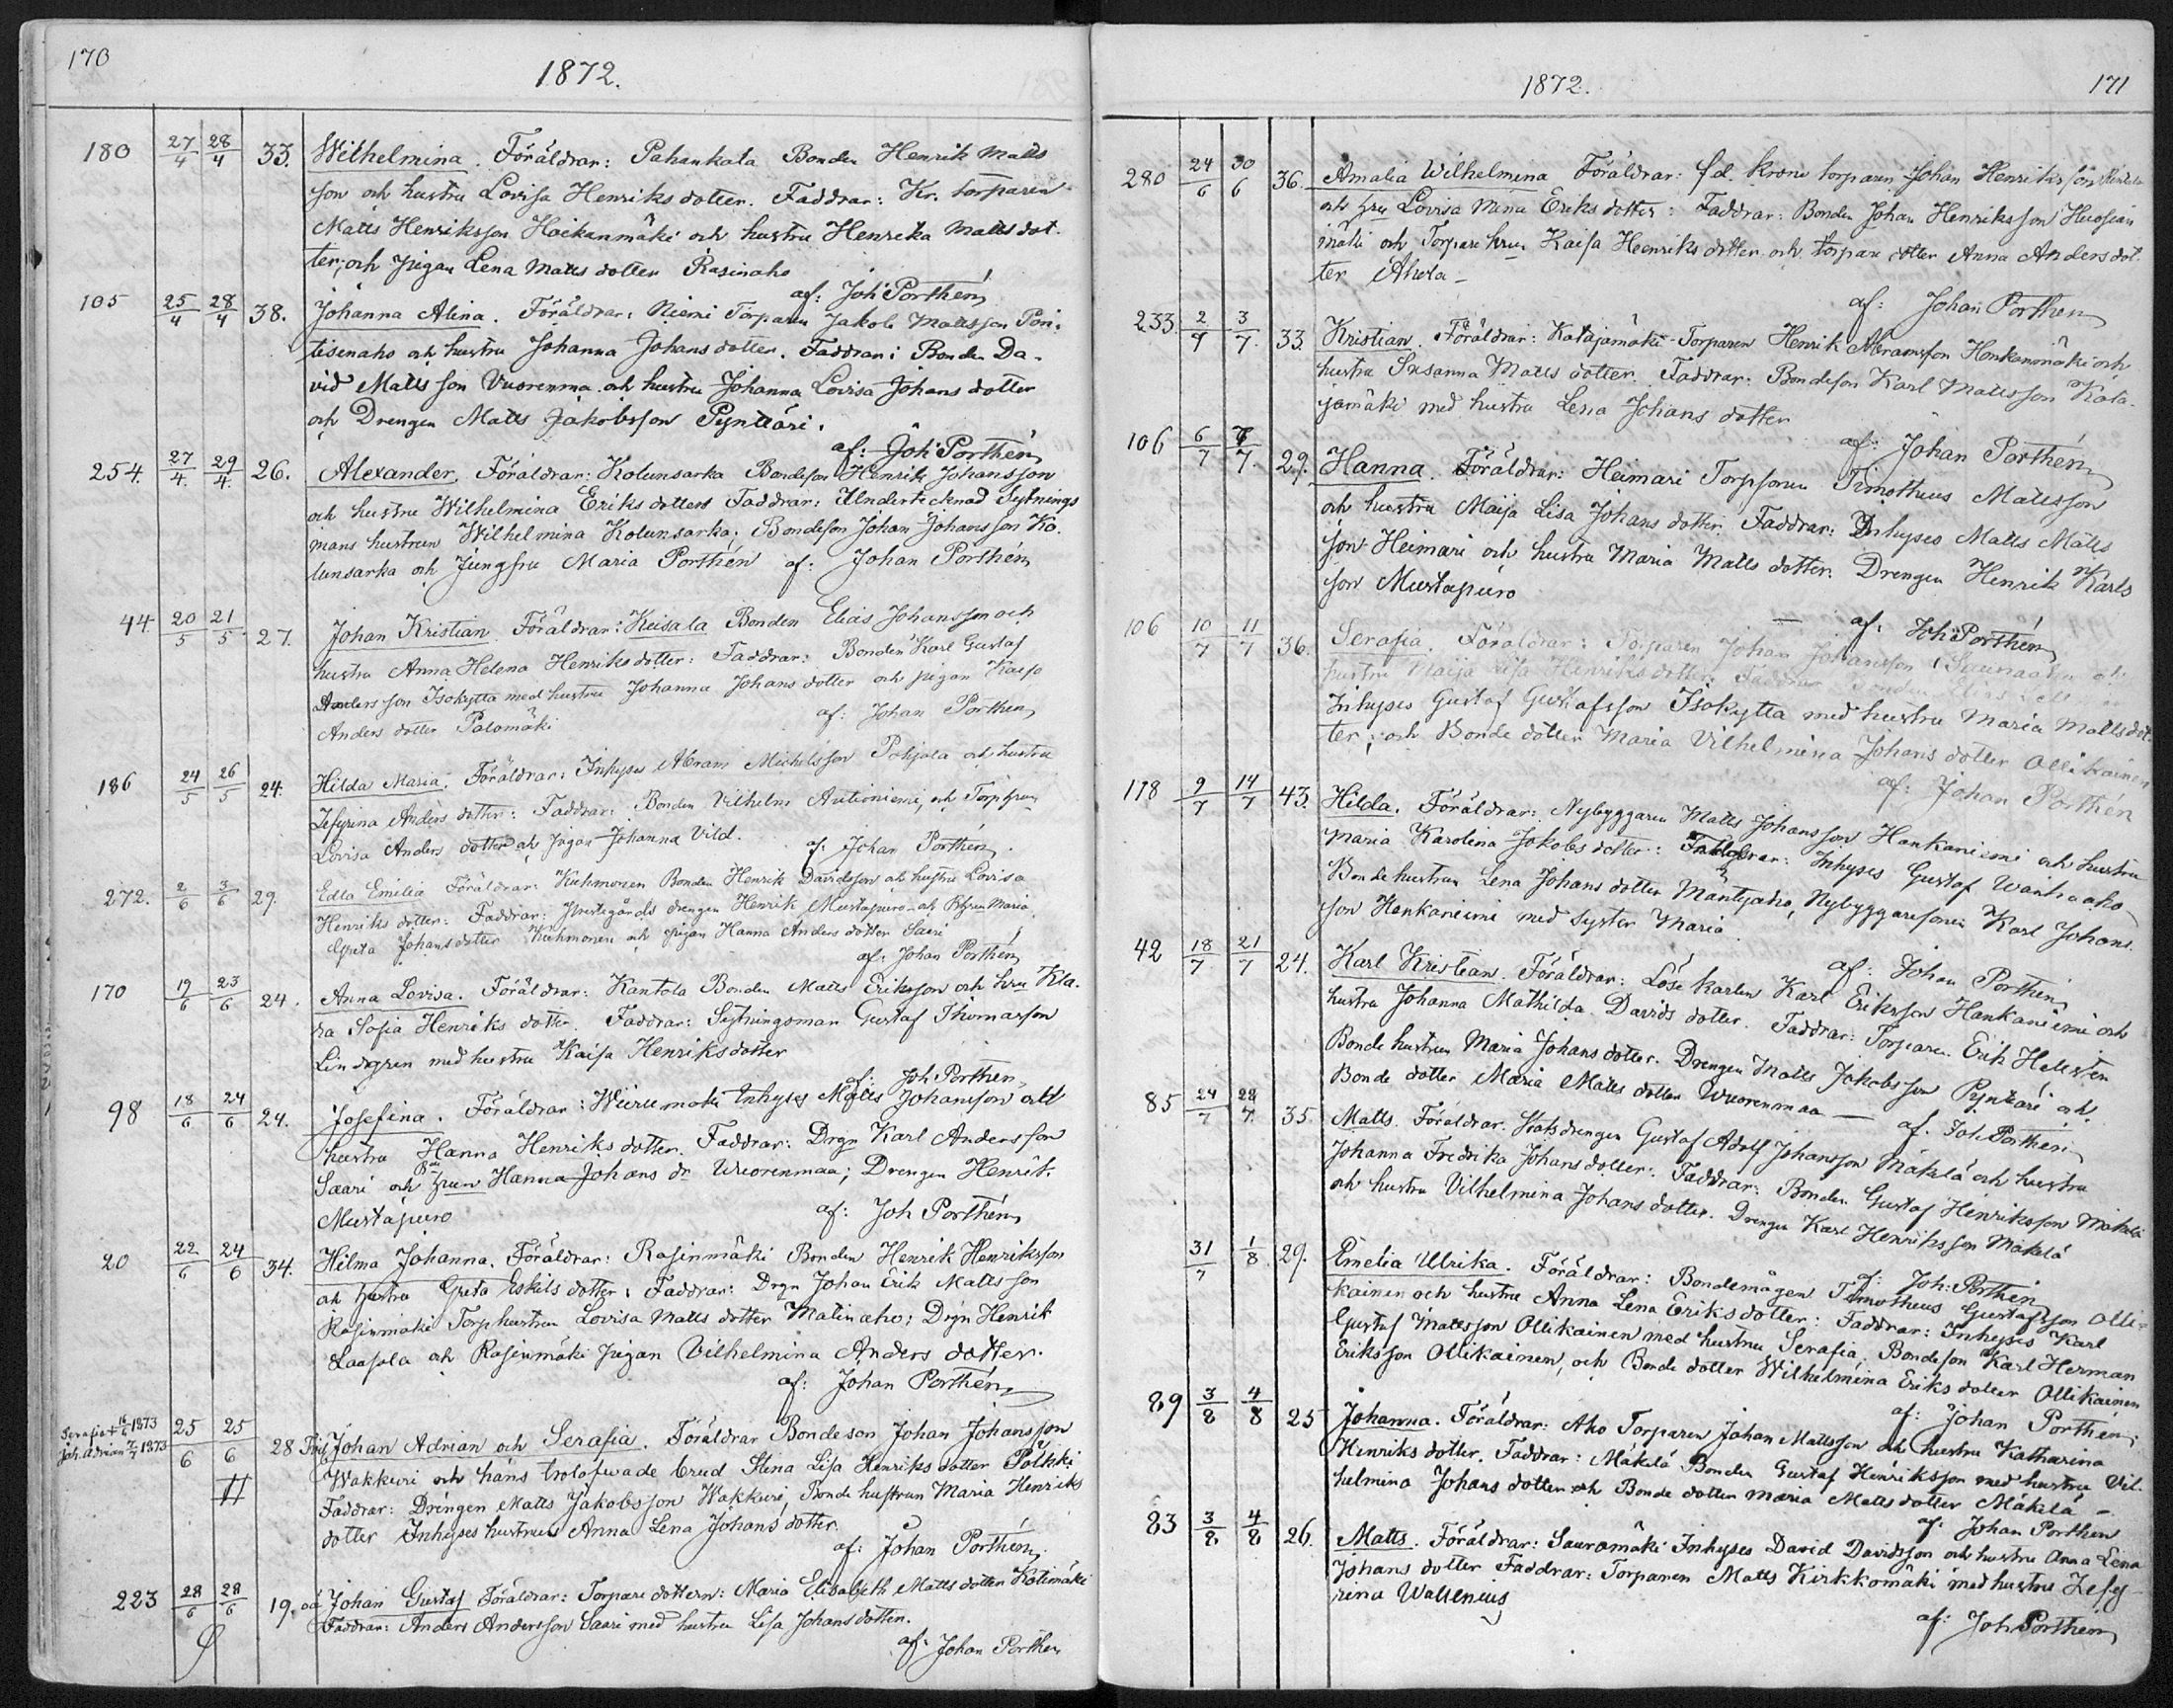 170
1872.
180 27/4 28/4 33. Wilhelmina. Föräldrar: Pahankala Bonden Henrik Matts
son och hustru Lovisa Henriksdotter. Faddrar: Kr. torparen
Matts Henriksson Haikanmäki och hustru Henrika Mattsdot-
ter; och pigan Lena Matts dotter Rasinaho
af: Joh Porthén
105 25/4 28/4 38. Johanna Alina. Föräldrar: Niemi Torparen Jakob Mattsson Pön-
tisenaho och hustru Johanna Johans dotter. Faddrar: Bonden Da-
vid Matts son Vuorenma och hustru Johanna Lovisa Johans dotter
och Drengen Matts Jakobsson Pynttäri.
af: Joh Porthén
254. 27/4. 29/4. 26. Alexander. Föräldrar: Kolunsarka Bondeson Henrik Johansson
och hustru Wilhelmina Eriks dotter Faddrar: Undertecknad Sytnings
mans hustrun Wilhelmina Kolunsarka; Bondeson Johan Johansson Ko-
lunsarka och Jungfru Maria Porthén af: Johan Porthén
44. 20/5 21/5. 27. Johan Kristian. Föräldrar: Keisala Bonden Elias Johansson och
hustru Anna Helena Henriksdotter: Faddrar: Bonden Karl Gustaf
Andersson Isokytta med hustru Johanna Johans dotter och pigan Kaisa
Anders dotter Palomäki af: Johan Porthen
186 24/5 26/5 24. Hilda Maria. Föräldrar: Inhyses Abram Michelsson Pohjola och hustru
Zefyrina Anders dotter: Faddrar: Bonden Vilhelm Autioniemi, och Torp hrun
Lovisa Anders dotter och pigan Johanna Vild.
af: Johan Porthén
272. 2/6 3/6 29. Edla Emilia Föräldrar: Kuhmonen Bonden Henrik Davidsson och hustru Lovisa
Henriks dotter: Faddrar: Prestgårds drengen Henrik Mustapuro och Maria
Greta Johans dotter Kuhmonen och pigan Hanna Anders dotter Saari
af: Johan Porthén
170 19/6 23/6 24. Anna Lovisa. Föräldrar: Kantola Bonden Matts Eriksson och hru Kla-
ra Sofia Henriks dotter. Faddrar: Sytningsman Gustaf Thomasson
Lindgren med hustru Kaisa Henriksdotter
af: Joh Porthen
98 18/6 24/6 24. Josefina. Föräldrar: Wiirumäki Inhyses Matts Johansson och
hustru Hanna Henriks dotter. Faddrar: Drgn Karl Andersson
Saari och hrun Hanna Johans dr Wuorenmaa; Drengen Henrik
Mustapuro af: Joh Porthén
20 22/6 24/6 34. Hilma Johanna. Föräldrar: Rasinmäki Bonden Henrik Henriksson
och hustru Greta Eskils dotter: Faddrar: Drgn Johan Erik Matts son
Rasinmäki Torp hustrun Lovisa Matts dotter Matinaho; Drgn Henrik
Laasola och Rasinmäki pigan Vilhelmina Anders dotter.
af: Johan Porthén
Serafia + 16/6 1873
Joh. Adrian 7/7 1873 25/6 25/6 28 Johan Adrian och Serafia. Föräldrar Bondeson Johan Johansson
Wakkuri och hans trolofwade brud Stina Lisa Henriks dotter Pölkki
Faddrar: Drengen Matts Jakobsson Wakkuri, Bonde hustrun Maria Henriks
dotter Inhyses hustrun Anna Lena Johans dotter.
af: Johan Porthén
223 28/6 28/6 19. oä Johan Gustaf Föräldrar: Torpare dottern: Maria Elisabeth Matts dotter Kotimäki
Faddrar: Anders Andersson Saari med hustru Lisa Johansdotter.
af: Johan Porthen
1872. 171
280 24/6 30/6 36. Amalia Wilhelmina Föräldrar: fd. krono torparen Johan Henriksson
och hru Lovisa Mina Eriks dotter: Faddrar: Bonden Johan Henriksson Huosian
mäki och Torpare hrun Kaisa Henriks dotter och torpare dotter Anna Anders dot-
ter Ahola -
af: Johan Porthen
233. 2/7 3/7. 33. Kristian. Föräldrar: Katajamäki Torparen Henrik Abramsson Honkanmäki och
hustru Susanna Matts dotter. Faddrar: Bondeson Karl Mattsson Kata-
jamäki med hustru Lena Johans dotter
af: Johan Porthén
106 6/7 7/7. 29. Hanna. Föräldrar: Heimari Torpsonen Timotheus Mattsson
och hustru Maija Lisa Johans dotter. Faddrar: Inhyses Matts Matts
son Heimari och hustru Maria Matts dotter. Drengen Henrik Karls
son Mustapuro
af: Joh Porthén
106 10/7 11/7 36. Serafia. Föräldrar: Torparen Johan Johansson
hustru Maija Lisa Henriks dotter: Faddrar Bonden
Inhyses Gustaf Gustafsson Isokytta med hustru Maria Matts dot-
ter; och Bonde dotter Maria Vilhelmina Johans dotter Ollikainen
af: Johan Porthén
178 9/7 14/7 43. Hilda. Föräldrar: Nybyggaren Matts Johansson Hankaniemi och hustru
Maria Karolina Jakobs dotter: Faddrar: Inhyses Gustaf Wanhaaho
Bonde hustrun Lena Johans dotter Mantyaho, Nybyggaresonen Karl Johans
son Hankaniemi med syster Maria.
af: Johan Porthén
42 18/7 21/7 24. Karl Kristian. Föräldrar: Löse karlen Karl Eriksson Hankaniemi och
hustru Johanna Mathilda Davids dotter. Faddrar: Torparen Erik Hellsten
Bonde hustrun Maria Johans dotter. Drengen Matts Jakobsson Pyntäri och
Bonde dotter Maria Matts dotter Wuorenmaa — af. Joh Porthén
85 24/7 28/7. 35 Matts. Föräldrar. Statsdrengen Gustaf Adolf Johansson Mäkelä och hustru
Johanna Fredrika Johans dotter: Faddrar: Bonden Gustaf Henriksson Mäkelä
och hustru Vilhelmina Johans dotter. Drengen Karl Henriksson Mäkelä
af: Joh: Porthén
31/7 1/8. 29. Emelia Ulrika. Föräldrar: Bondemågen Timotheus Gustafsson Olli-
kainen och hustru Anna Lena Eriks dotter: Faddrar: Inhyses Karl
Gustaf Mattsson Ollikainen med hustru Serafia. Bondeson Karl Herman
Eriksson Ollikainen, och Bonde dotter Wilhelmina Eriks dotter Ollikainen
af: Johan Porthén
89 3/8 4/8 25 Johanna. Föräldrar: Aho Torparen Johan Mattsson och hustru Katharina
Henriks dotter. Faddrar: Mäkelä Bonden Gustaf Henriksson med hustru Vil-
helmina Johans dotter och Bonde dotter Maria Matts dotter Mäkelä -
af: Johan Porthen
83 3/8 4/8 26. Matts. Föräldrar: Sauromäki Inhyses David Davidsson och hustru Anna Lena
Johans dotter Faddrar: Torparen Matts Kirkkomäki med hustru Zefy-
rina Wallenius
af: Joh Porthén